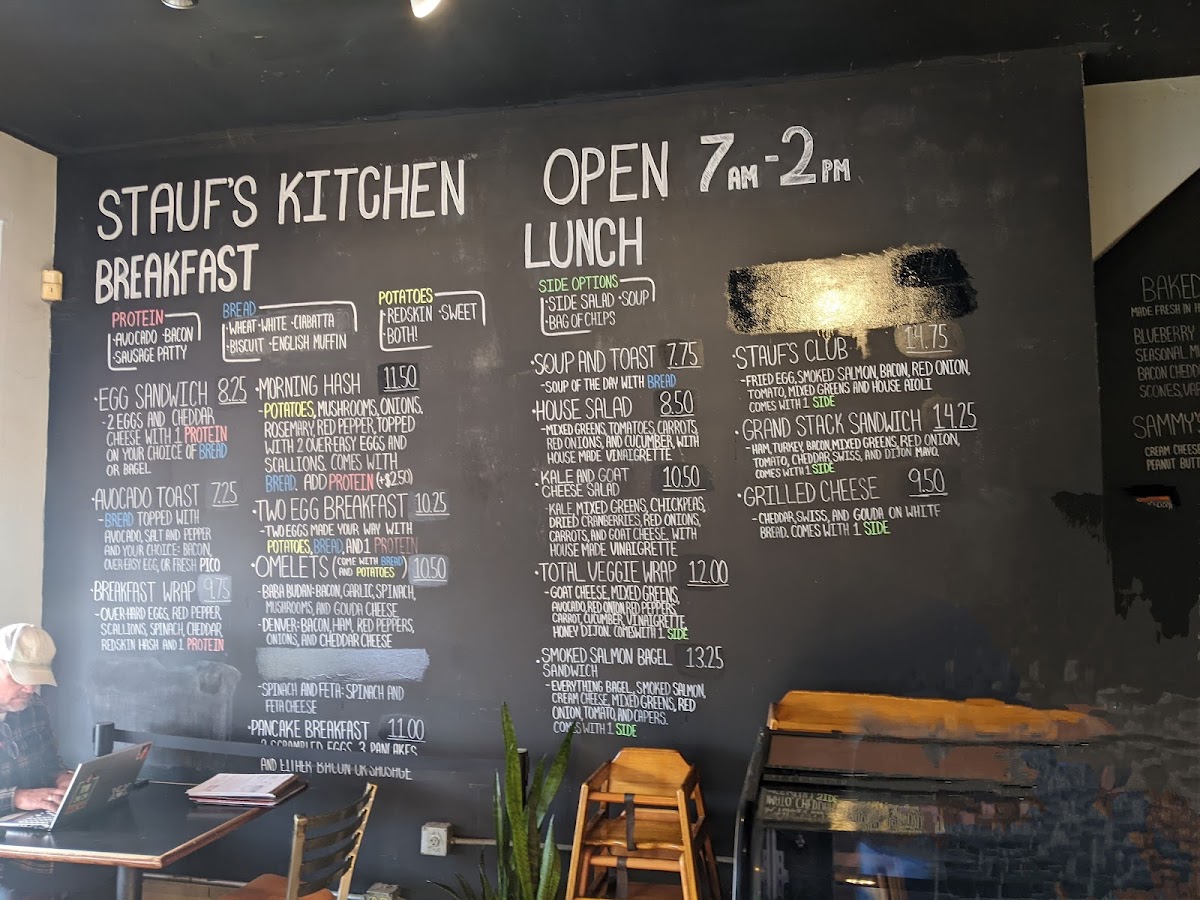 STAUF'S KITCHEN
OPEN 7AM-2PM
BREAKFAST
PROTEIN
·AVOCADO ·BACON
·SAUSAGE PATTY
BREAD
·WHEAT ·WHITE ·CIABATTA
·BISCUIT ·ENGLISH MUFFIN
POTATOES
·REDSKIN ·SWEET
·BOTH!
·EGG SANDWICH 8.25
-2 EGGS AND CHEDDAR
CHEESE WITH 1 PROTEIN
ON YOUR CHOICE OF BREAD
OR BAGEL
AVOCADO TOAST 7.25
-BREAD TOPPED WITH
AVOCADO, SALT AND PEPPER
AND YOUR CHOICE: BACON,
OVER-EASY EGG, OR FRESH PICO
·BREAKFAST WRAP 9.75
-OVER HARD EGGS, RED PEPPER,
SCALLIONS, SPINACH, CHEDDAR,
REDSKIN HASH AND 1 PROTEIN
·MORNING HASH 11.50
-POTATOES, MUSHROOMS, ONIONS,
ROSEMARY, RED PEPPER, TOPPED
WITH 2 OVER-EASY EGGS AND
SCALLIONS. COMES WITH
BREAD. ADD PROTEIN (+$2.50)
·TWO EGG BREAKFAST 10.25
-TWO EGGS MADE YOUR WAY WITH
POTATOES, BREAD, AND 1 PROTEIN
·OMELETS (COME WITH BREAD AND POTATOES) 10.50
-BABA BUDAN: BACON, GARLIC, SPINACH,
MUSHROOMS, AND GOUDA CHEESE
-DENVER: BACON, HAM, RED PEPPERS,
ONIONS, AND CHEDDAR CHEESE
-SPINACH AND FETA: SPINACH AND
FETA CHEESE
·PANCAKE BREAKFAST 11.00
2 SCRAMBLED EGGS, 3 PANCAKES
AND EITHER BACON OR SAUSAGE
LUNCH
SIDE OPTIONS
·SIDE SALAD ·SOUP
·BAG OF CHIPS
·SOUP AND TOAST 7.75
-SOUP OF THE DAY WITH BREAD
·HOUSE SALAD 8.50
-MIXED GREENS, TOMATOES, CARROTS,
RED ONIONS, AND CUCUMBER, WITH
HOUSE MADE VINAIGRETTE
·KALE AND GOAT
CHEESE SALAD 10.50
-KALE, MIXED GREENS, CHICKPEAS,
DRIED CRANBERRIES, RED ONIONS,
CARROTS, AND GOAT CHEESE, WITH
HOUSE MADE VINAIGRETTE
·TOTAL VEGGIE WRAP 12.00
-GOAT CHEESE, MIXED GREENS,
AVOCADO, RED ONION, RED PEPPERS,
CARROT, CUCUMBER, VINAIGRETTE,
HONEY DIJON. COMES WITH 1 SIDE
·SMOKED SALMON BAGEL 13.25
SANDWICH
-EVERYTHING BAGEL, SMOKED SALMON,
CREAM CHEESE, MIXED GREENS, RED
ONION, TOMATO, AND CAPERS.
COMES WITH 1 SIDE
·STAUF'S CLUB 14.75
-FRIED EGG, SMOKED SALMON, BACON, RED ONION,
TOMATO, MIXED GREENS AND HOUSE AIOLI
COMES WITH 1 SIDE
·GRAND STACK SANDWICH 14.25
-HAM, TURKEY, BACON, MIXED GREENS, RED ONION,
TOMATO, CHEDDAR, SWISS, AND DIJON MAYO.
COMES WITH 1 SIDE
·GRILLED CHEESE 9.50
-CHEDDAR, SWISS, AND GOUDA ON WHITE
BREAD. COMES WITH 1 SIDE
BAKED
MADE FRESH IN
BLUEBERRY
SEASONAL
BACON CHEDD
SCONES,
SAMMY'S
CREAM CHEESE
PEANUT BUTT